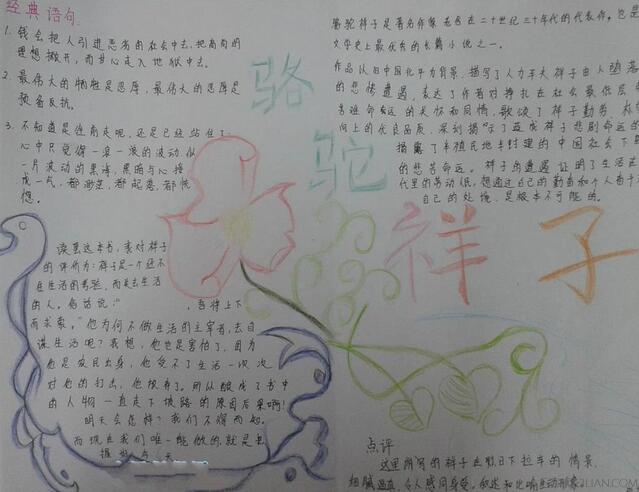 经典语句
1. 钱会把人引进恶劣的社会中去，把高尚的
理想撇开，而甘心走入地狱中去。
2. 最伟大的牺牲是忍辱，最伟大的忍辱是
预备反抗。
3. 不知道是往前走呢，还是已经站住了，
心中只觉得一浪一浪的波动，似
一片波动的黑海，黑暗与心接
成一气，都渺茫，都起落，都恍
惚。
读罢这本书，我对祥子
的评价为：祥子是一个经不
住生活的考验，而失去生活
的人。俗话说：“
，吾将上下
而求索。”他为何不做生活的主宰者，去自
谋生活呢？我想，他也是害怕了，因为
他是农民出身，他受不了生活一次次
对他的打击，他放弃了。所以酿成了书中
的人物一直走下坡路的原因后果啊！
明天会怎样？我们不得而知。
而现在我们唯一能做的就是
骆
驼
祥子
骆驼祥子是著名作家老舍在二十世纪三十年代的代表作，也是
文学史上最优秀的长篇小说之一。
作品以旧中国北平为背景，描写了人力车夫祥子由人堕落
的悲惨遭遇，表达了作者对挣扎在社会最底层
苦难命运的关怀和同情，歌颂了祥子勤劳、朴
向上的优良品质，深刻揭示了造成祥子悲剧命运的
揭露了半殖民地半封建的中国社会下
的悲苦命运。祥子的遭遇证明了生活在
代里的劳动人民，想通过自己的勤劳和个人奋斗
自己的处境，是根本不可能的。
点评
这里所写的祥子在烈日下拉车的情景，
细腻逼真，令人感同身受。叙述和比喻生动形象